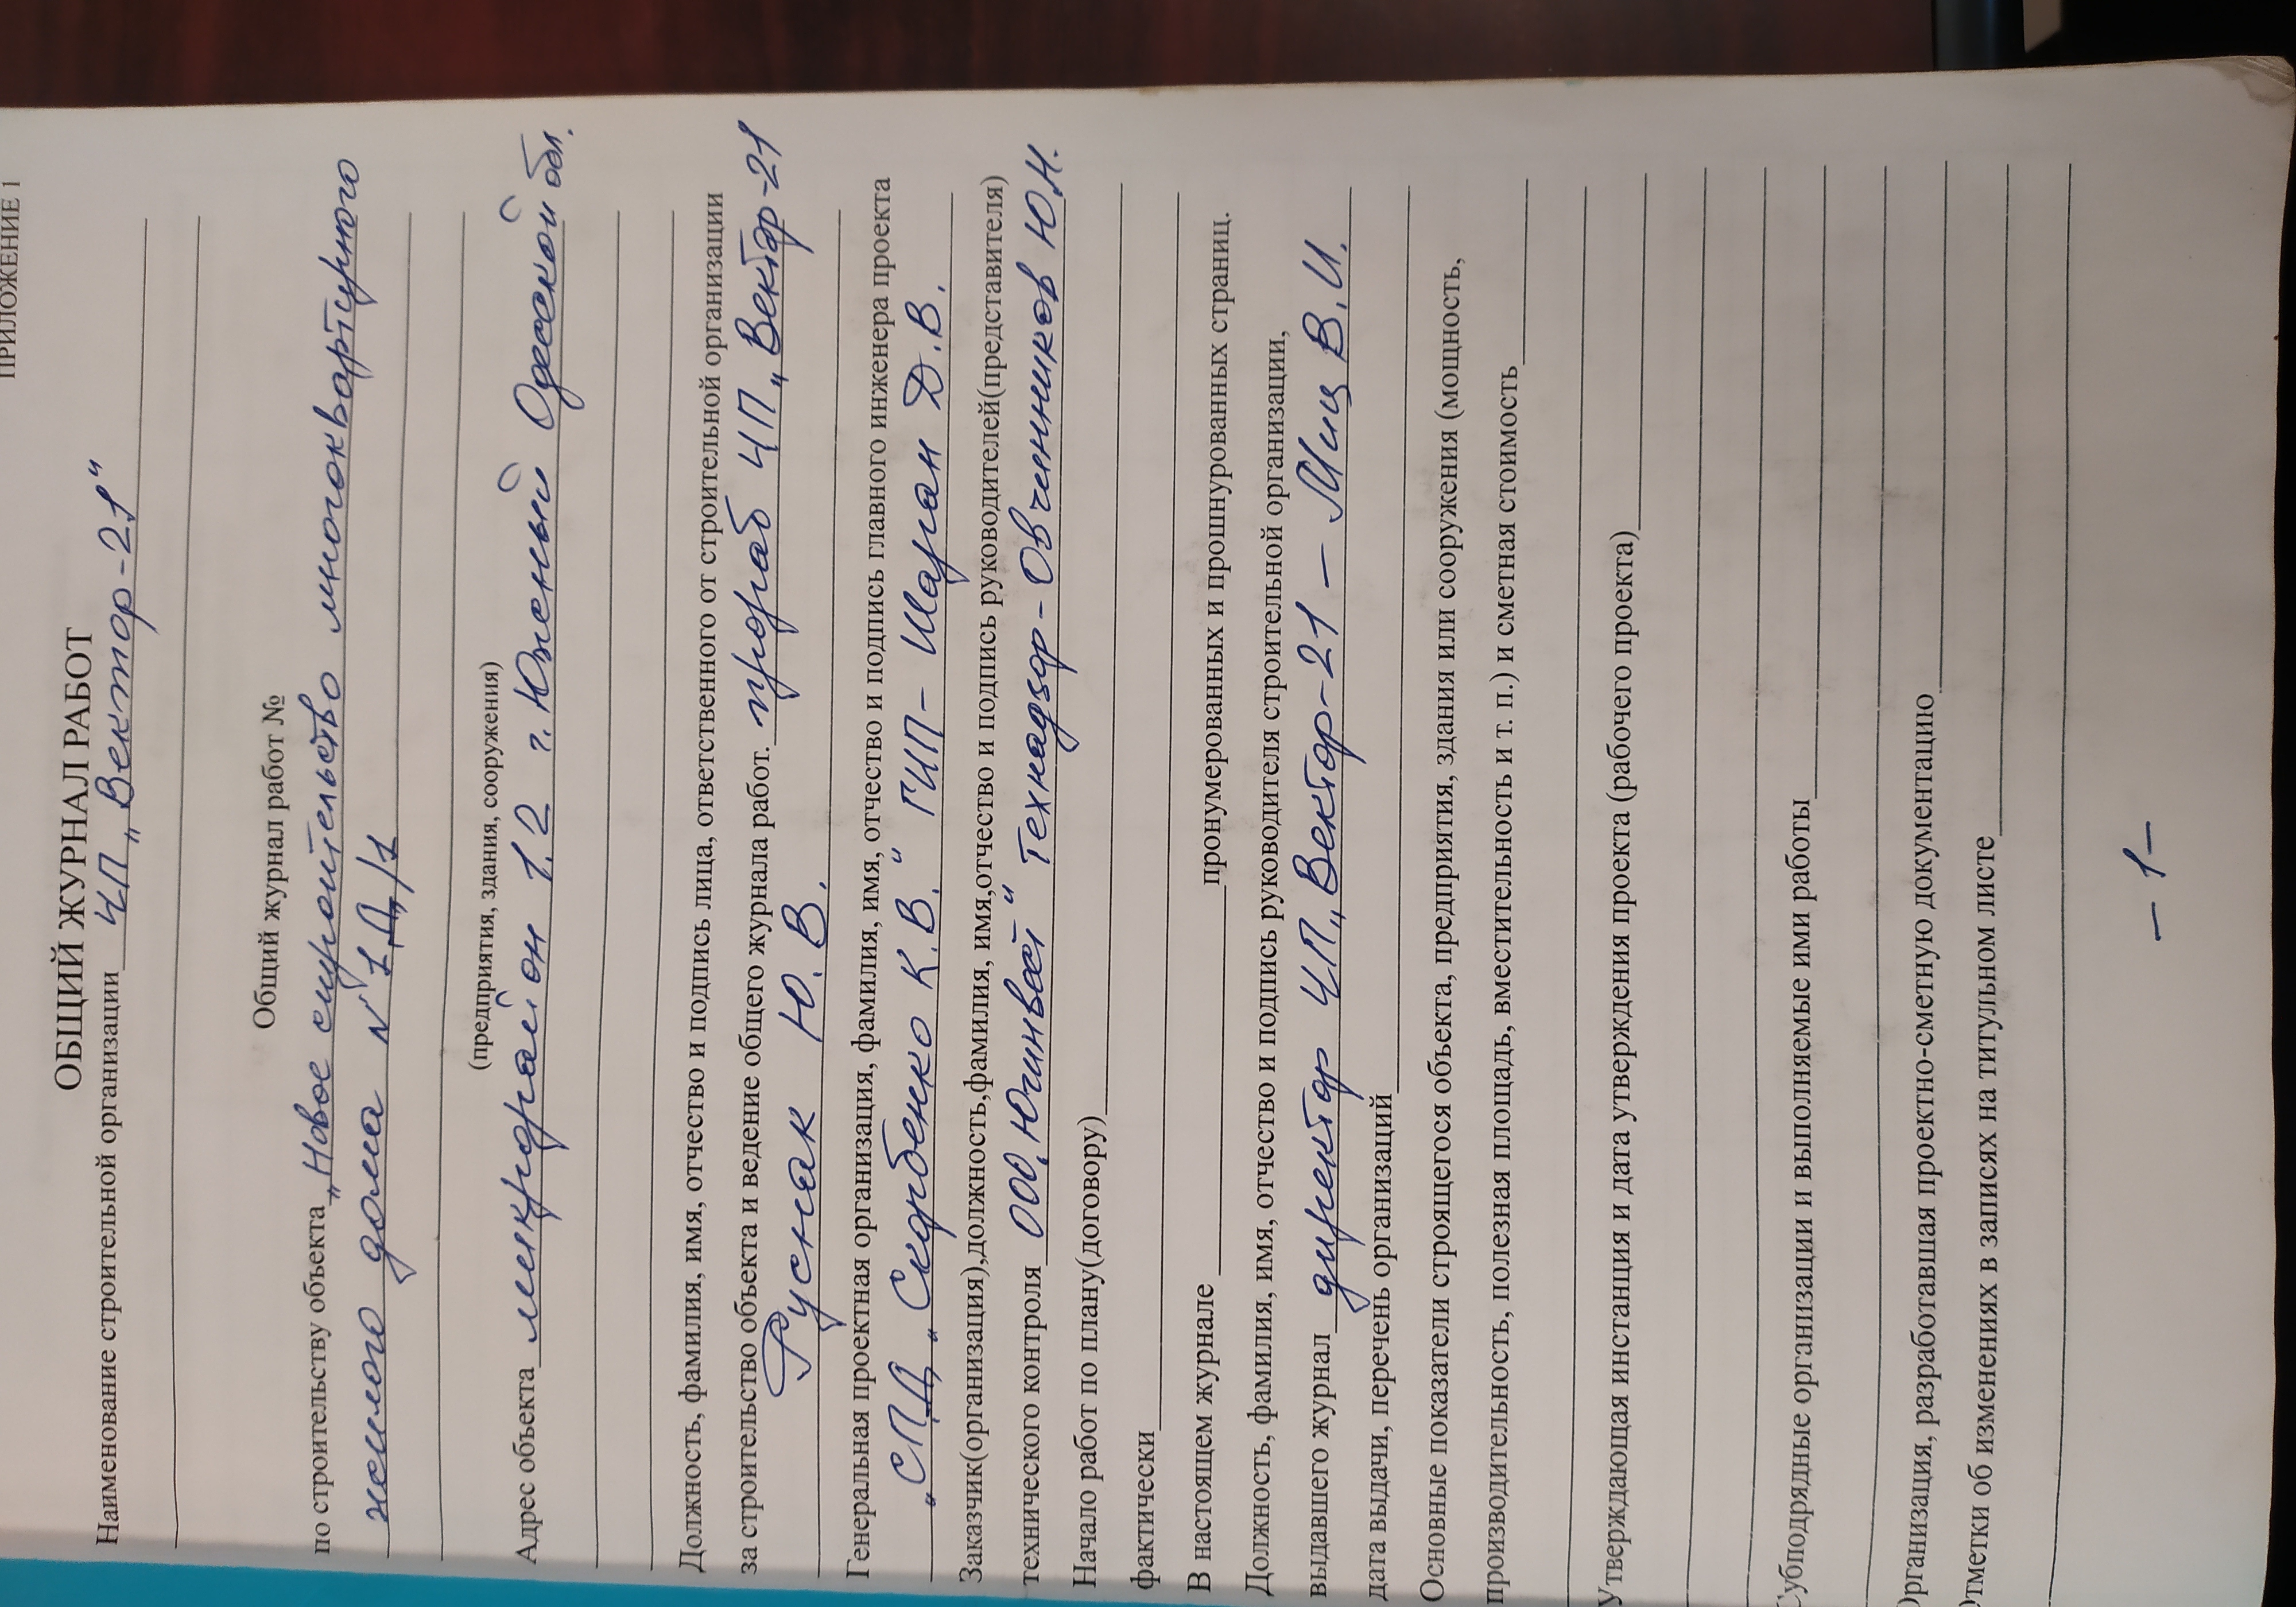 ПРИЛОЖЕНИЕ 1
ОБЩИЙ ЖУРНАЛ РАБОТ
Наименование строительной организации ЧП „Вектор-21"
Общий журнал работ №
по строительству объекта „Новое строительство многоквартирного
жилого дома №1Д/1
(предприятия, здания, сооружения)
Адрес объекта микрорайон 1.2 г. Южный Одесской обл.
Должность, фамилия, имя, отчество и подпись лица, ответственного от строительной организации
за строительство объекта и ведение общего журнала работ. прораб ЧП „Вектор-21
Руснак Ю.В.
Генеральная проектная организация, фамилия, имя, отчество и подпись главного инженера проекта
„СПД „Скорбенко К.В." ГИП - Шарган Д.В.
Заказчик(организация),должность,фамилия, имя,отчество и подпись руководителей(представителя)
технического контроля ООО„Югинвест" Технадзор - Овчинников Ю.Н.
Начало работ по плану(договору)
фактически
В настоящем журнале пронумерованных и прошнурованных страниц.
Должность, фамилия, имя, отчество и подпись руководителя строительной организации,
выдавшего журнал директор ЧП„Вектор-21 – Миц В.И.
дата выдачи, перечень организаций
Основные показатели строящегося объекта, предприятия, здания или сооружения (мощность,
производительность, полезная площадь, вместительность и т. п.) и сметная стоимость
Утверждающая инстанция и дата утверждения проекта (рабочего проекта)
Субподрядные организации и выполняемые ими работы
Организация, разработавшая проектно-сметную документацию
Отметки об изменениях в записях на титульном листе
– 1 –